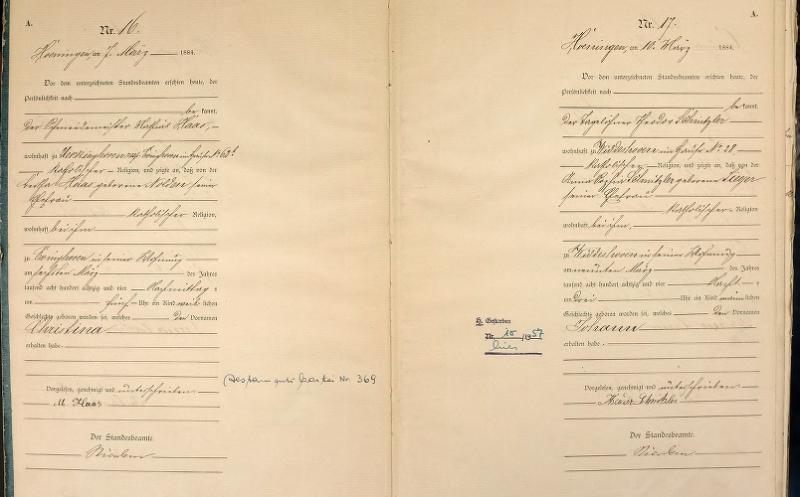 A.
Nr. 16.
Hoeningen, am 7. März 1884.
Vor dem unterzeichneten Standesbeamten erschien heute, der
Persönlichkeit nach
bekannt,
der Schmiedemeister Mathias Haas,
wohnhaft zu
Katholischer Religion, und zeigte an, daß von der
Haas geborene Nolden seiner
Ehefrau
Katholischer Religion,
wohnhaft bei ihm
zu in seiner Wohnung
am sechsten März des Jahres
tausend acht hundert achtzig und vier Nachmittags
um fünf Uhr ein Kind weiblichen
Geschlechts geboren worden sei, welches den Vornamen
Christina
erhalten habe.
Vorgelesen, genehmigt und unterschrieben
M. Haas
Der Standesbeamte.
Nr. 369
A.
Nr. 17.
Hoeningen, am 10. März 1884.
Vor dem unterzeichneten Standesbeamten erschien heute, der
Persönlichkeit nach
bekannt,
der Tagelöhner Theodor Schnitzler
wohnhaft zu Widdeshoven im Hause No 28
Katholischer Religion, und zeigte an, daß von der
Anna Sophia Schnitzler geborene
seiner Ehefrau
Katholischer Religion,
wohnhaft bei ihm,
zu Widdeshoven in seiner Wohnung
am neunten März des Jahres
tausend acht hundert achtzig und vier Nachts
um drei Uhr ein Kind männlichen
Geschlechts geboren worden sei, welches den Vornamen
Johann
erhalten habe.
H. Gestorben
Nr. 10 / 1957
Vorgelesen, genehmigt und unterschrieben
Schnitzler
Der Standesbeamte.